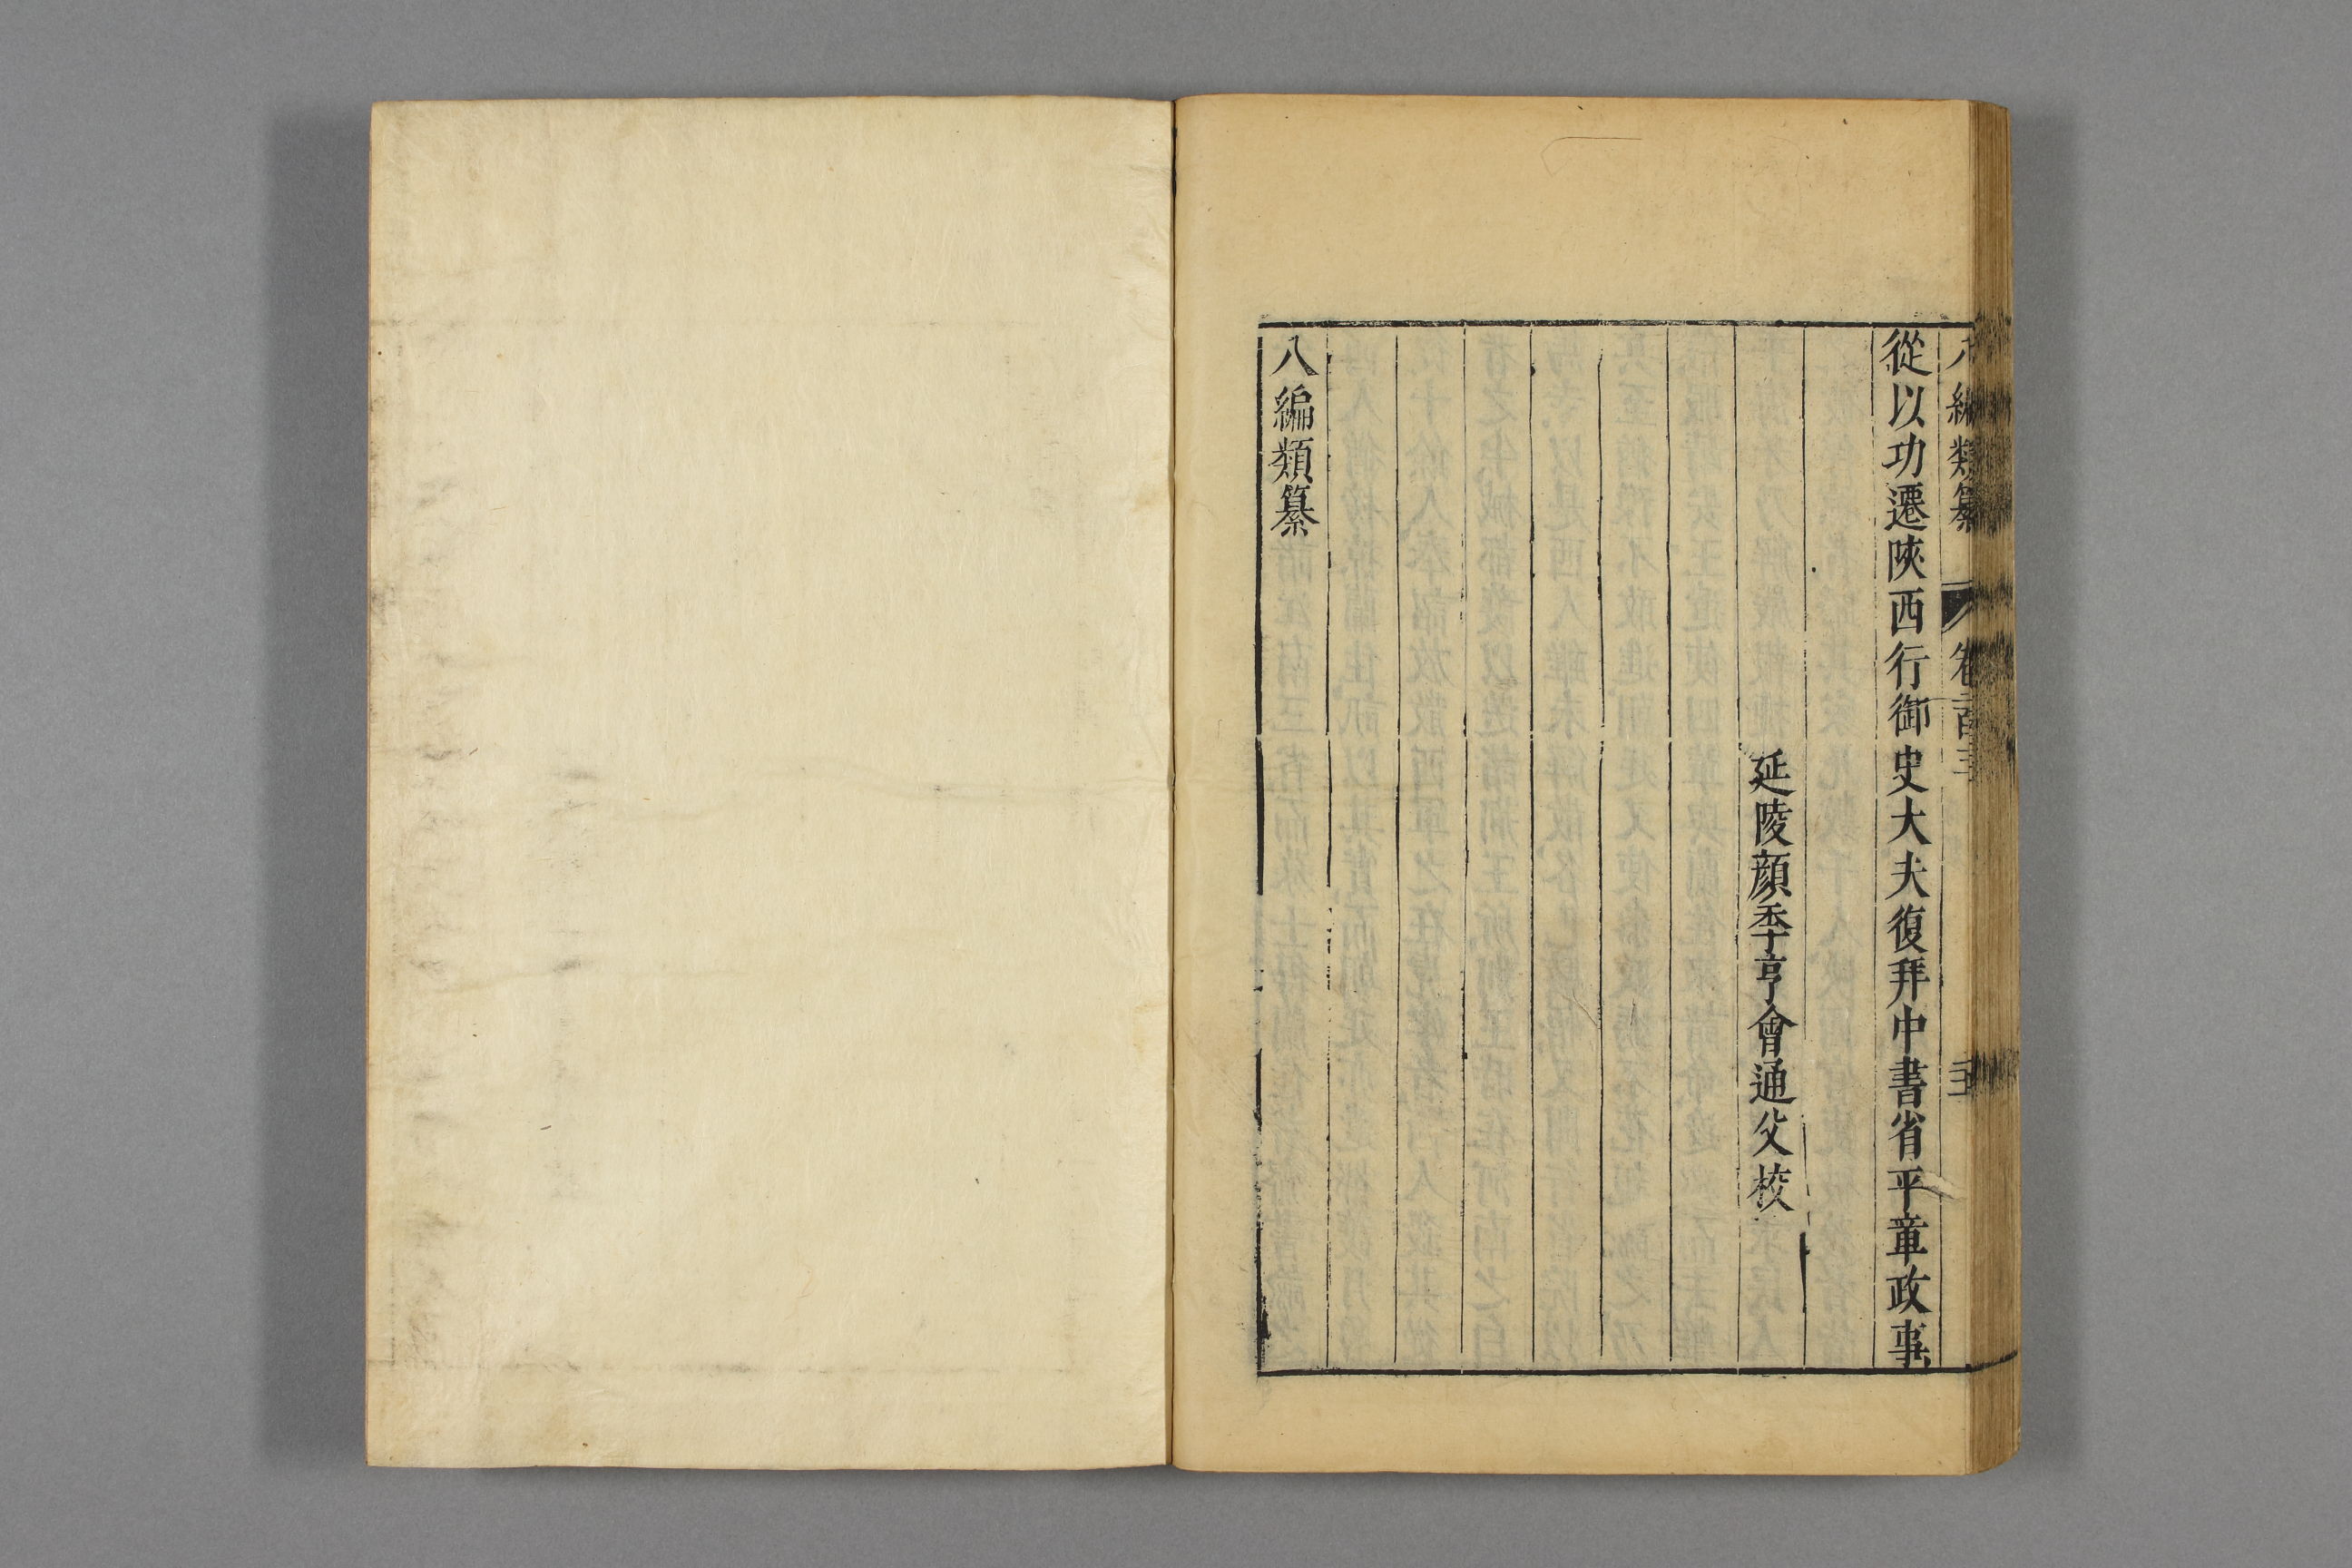 八編類纂 卷
從以功遷陜西行御史大夫復拜中書省平章政事
延陵顏季亨會通父校
八編類纂